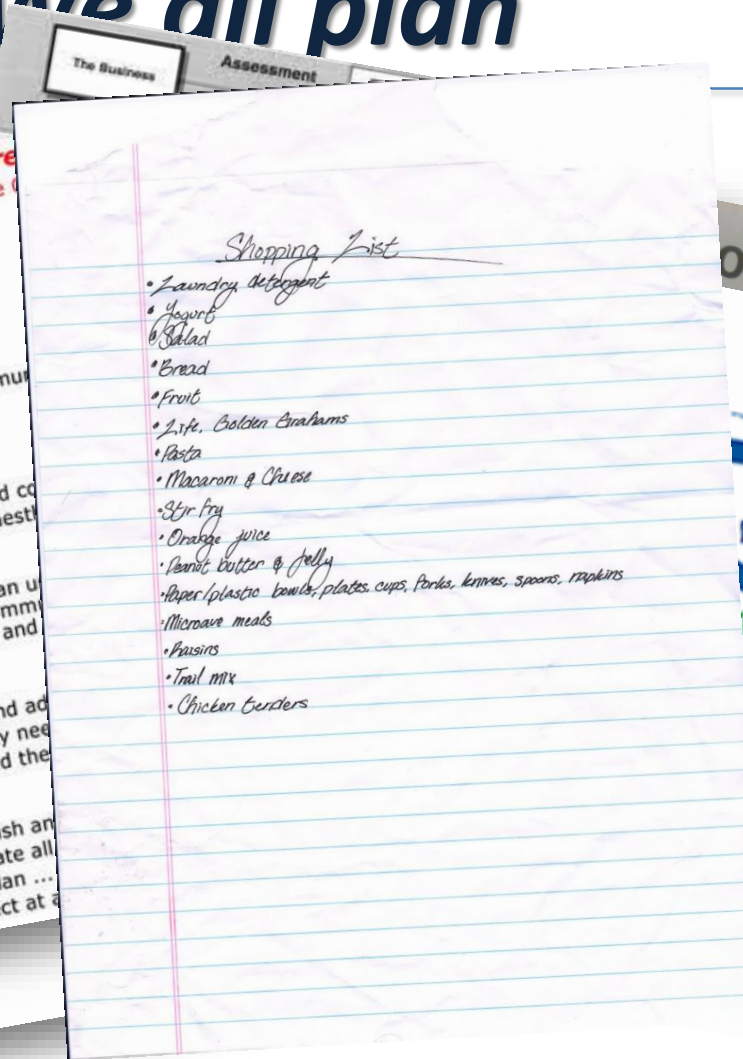 we all plan
The Business
Assessment
Shopping List
• Laundry detergent
• Yogurt
• Salad
• Bread
• Fruit
• Life, Golden Grahams
• Pasta
• Macaroni & Cheese
• Stir fry
• Orange juice
• Peanut butter & jelly
• Paper/plastic bowls, plates, cups, forks, knives, spoons, napkins
• Microave meals
• Raisins
• Trail mix
• Chicken tenders
d co
an u
and
nd ad
y nee
d the
sh an
ate all
lan ...
ct at a